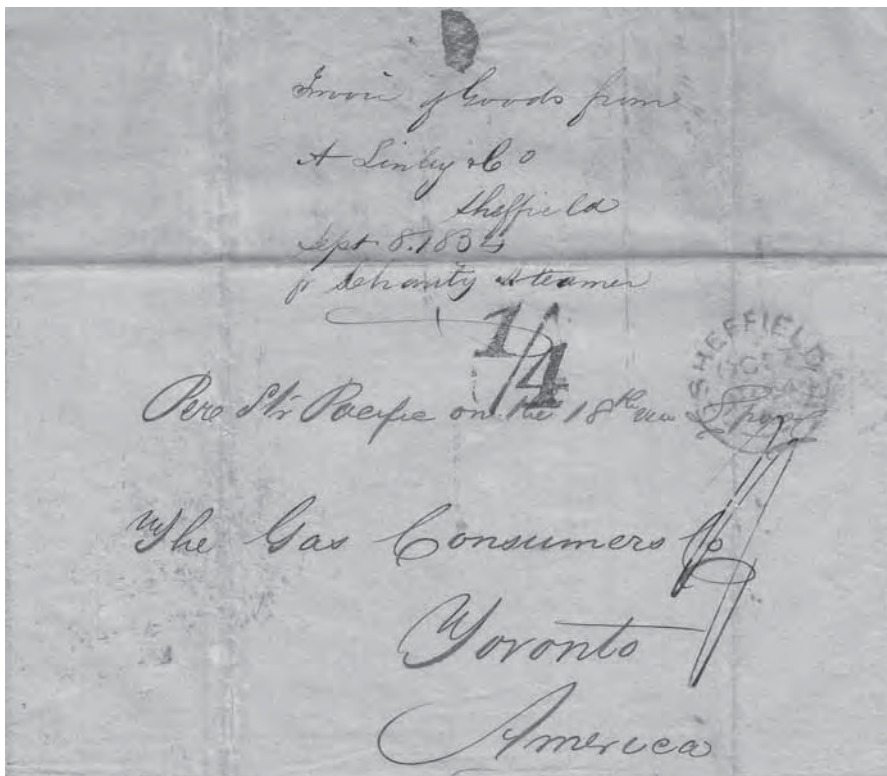 Invoice of Goods from
A Linley & Co
Sheffield
Sept 8. 185
p Charity Steamer
1/4
SHEFFIELD
Pere Str Pacific on the 18th
The Gas Consumers Co
Toronto
America